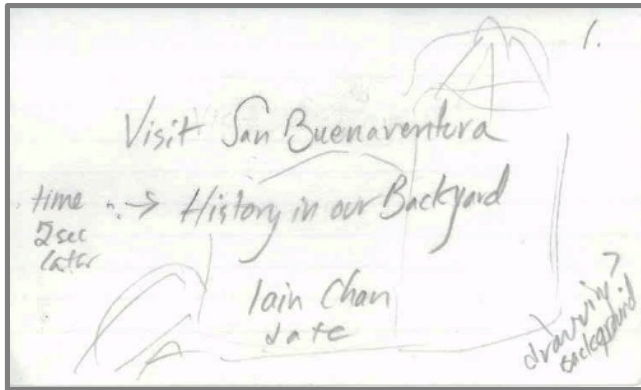 1.
Visit San Buenaventura
time
5sec
later
→ History in our Backyard
Iain Chan
date
drawing
background